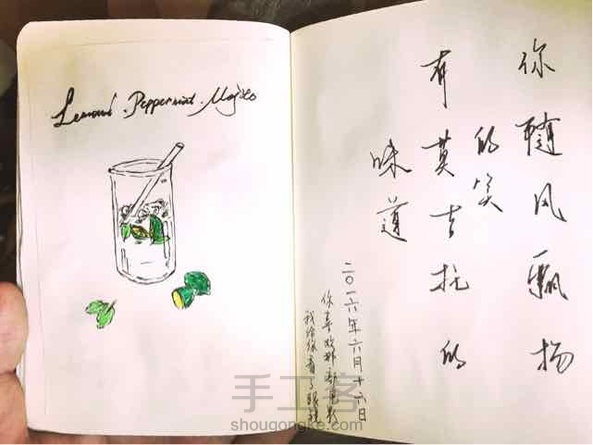 Lemond . Peppermint . Mojito
你隨风飘扬
的笑
有莫吉托的
味道
二〇一六年六月十六日
你喜欢那部电影
我给你看了
手工客
shougongke.com